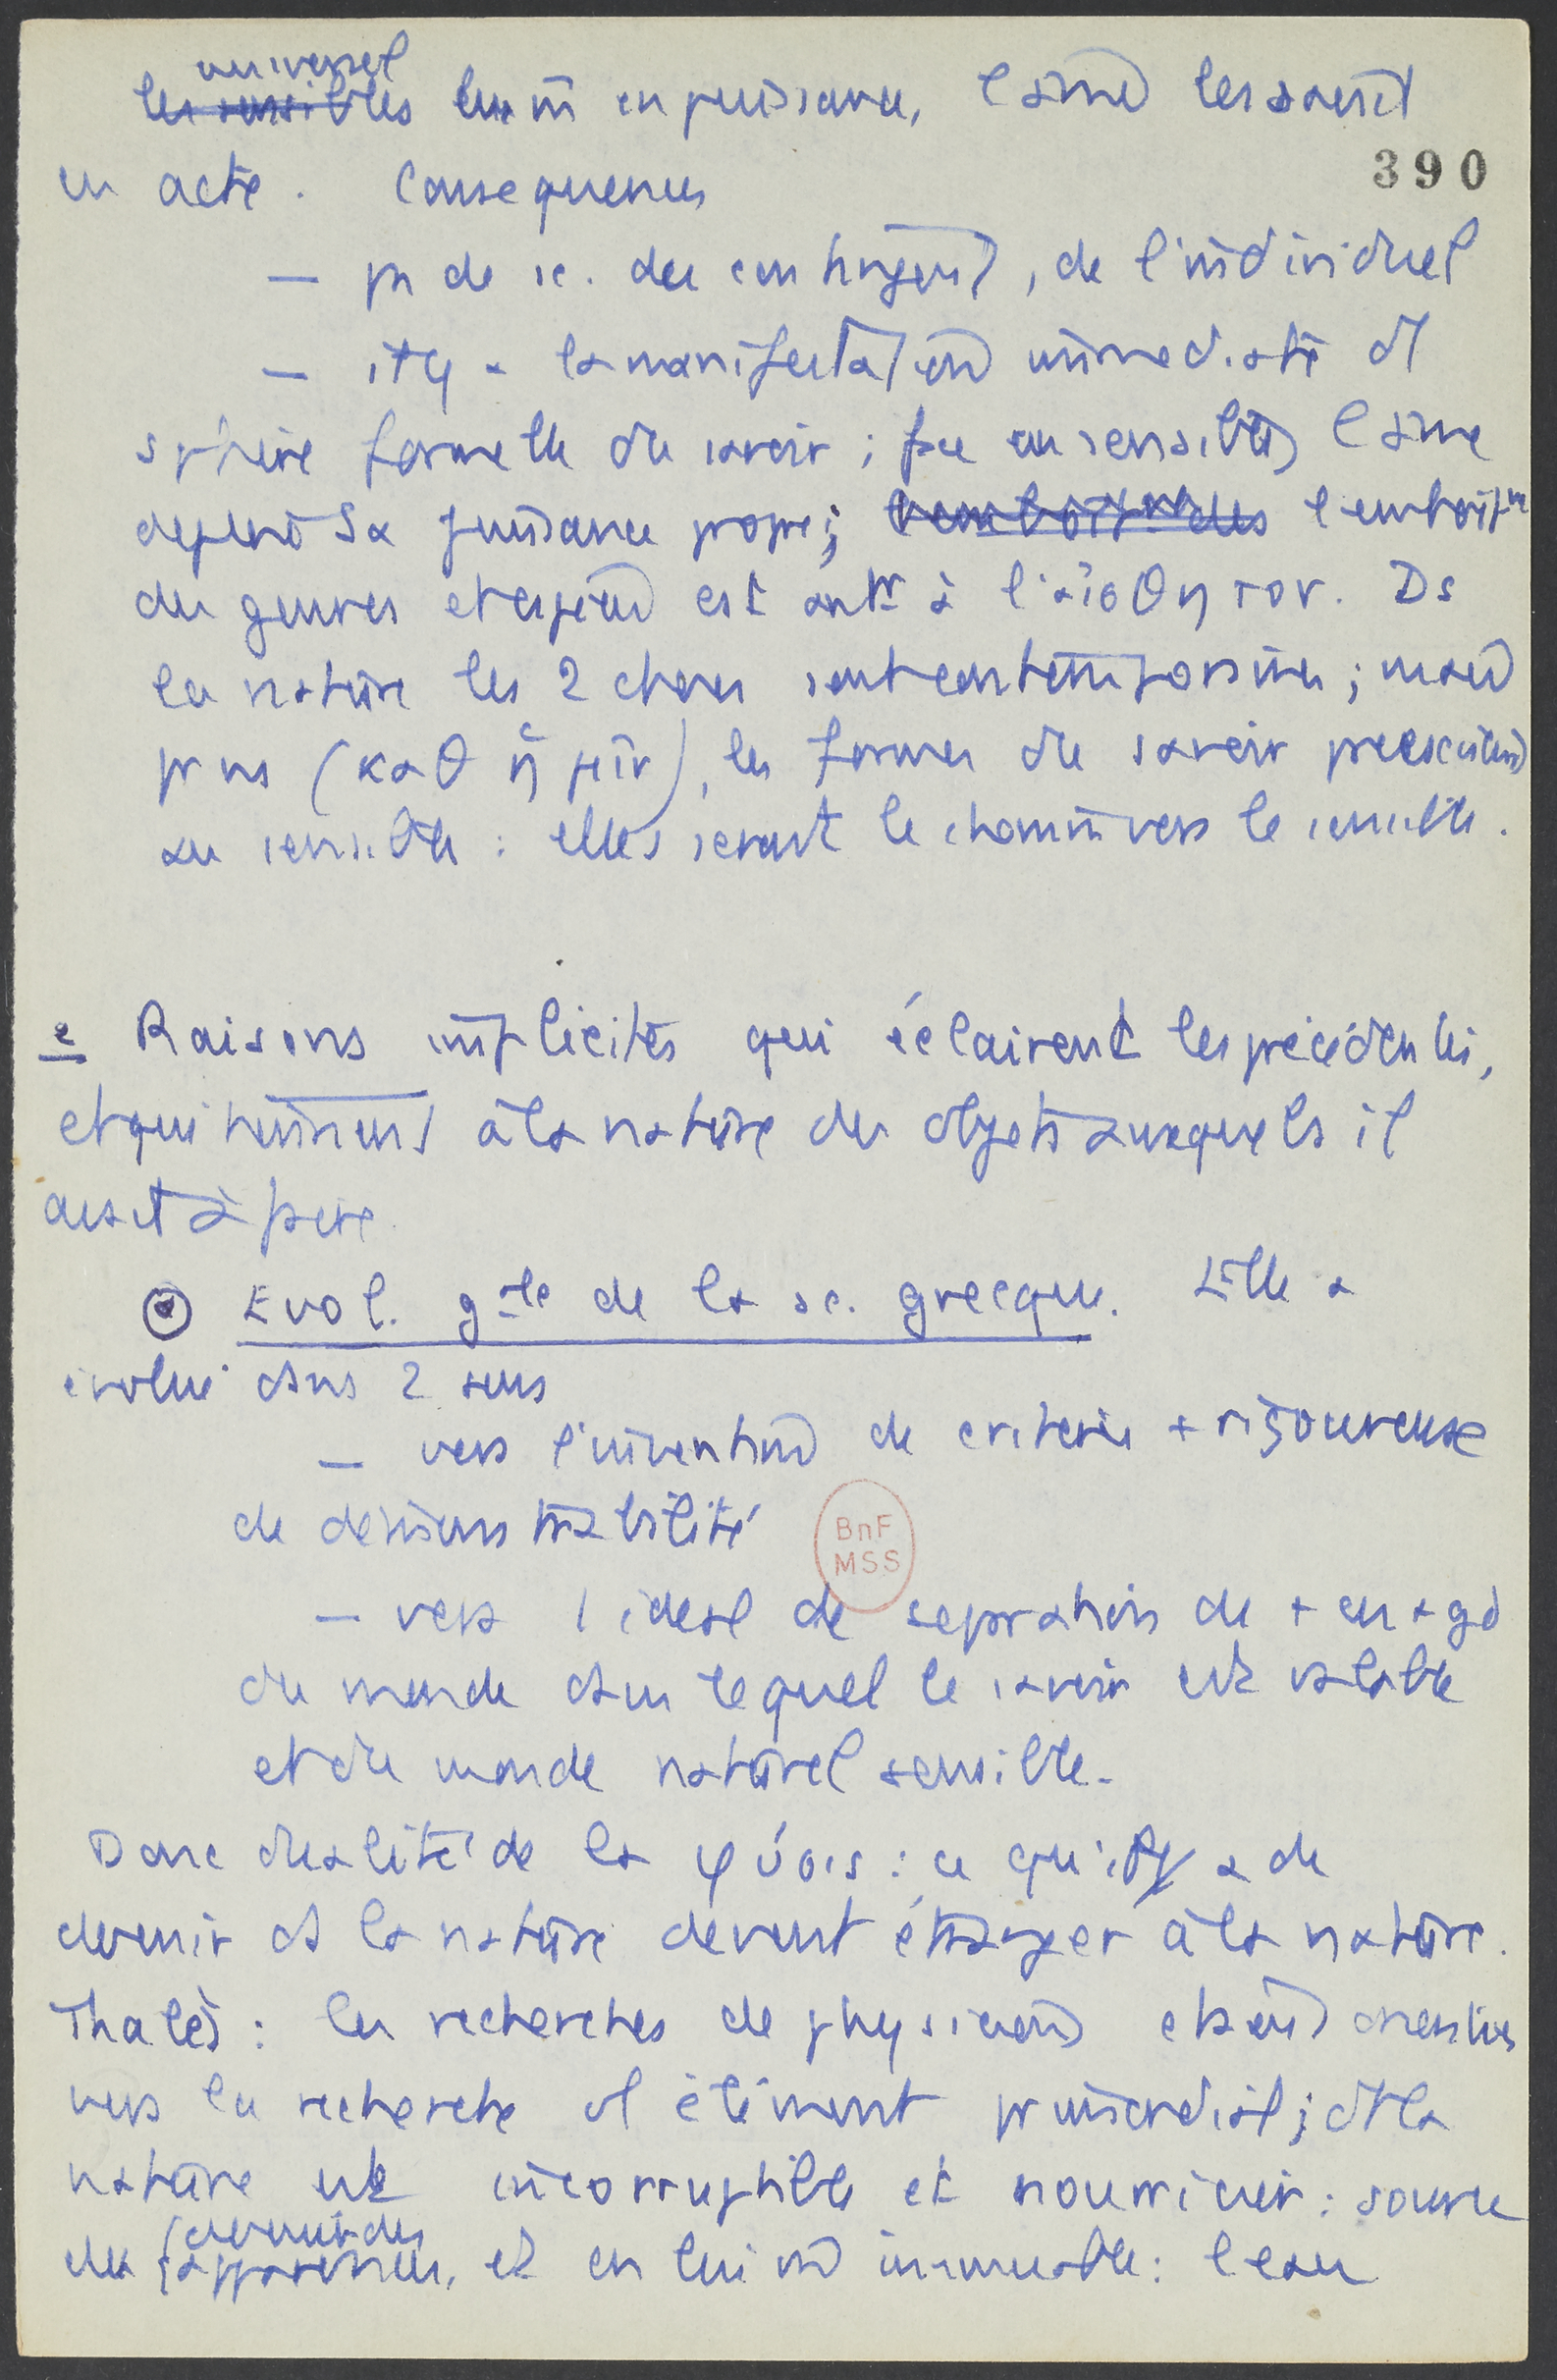 universel
les sensibles en puissance, l'âme les saisit
en acte. Consequences
390
— pas de sc. du contingent, de l'individuel
— il y a la manifestation immediate d'1
sphère formelle du savoir ; face au sensible, l'âme
depend sa puissance propre ; l'emboitmt des l'emboitmt
des genres et espèces est antr à l'αἰσθητον. Ds
la nature les 2 choses sont contemporaines ; mais
pr ns (καθ ἡμῖν), les formes du savoir preexistent
au sensible : elles seront le chemin vers le sensible.
2 Raisons implicites qui éclairent les précédentes,
et qui tiennent à la nature des objets auxquels il
avait à faire
Evol. gale de la sc. grecque. Elle a
évolué dans 2 sens
— vers l'invention de critères + rigoureuse
de démonstrabilité
BnF
MSS
— vers l'idéal de separation de + en + gd
du monde dans lequel le savoir est valable
et du monde naturel sensible.
Donc dualité de la φύσις : ce qu'il y a de
devenir ds la nature devient étranger à la nature.
Thalès : les recherches de physiciens étaient orientées
vers la recherche d'1 élément primordial ; dt la
nature est incorruptible et nourricier : source
devenir des
des apparences, et en lui mm immuable : l'eau